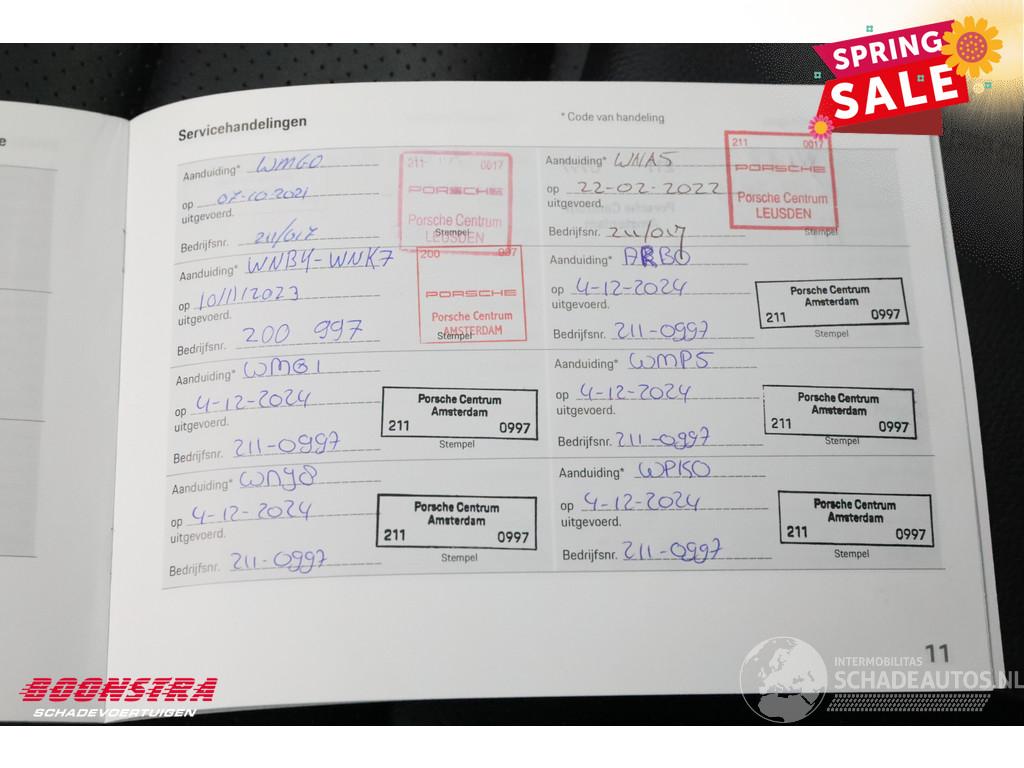 SPRING
SALE
Servicehandelingen
* Code van handeling
Aanduiding* WMG0
op 07-10-2021
uitgevoerd.
Bedrijfsnr. 211/017
211 0017
PORSCHE
Porsche Centrum
LEUSDEN
Stempel
Aanduiding* WNA5
op 22-02-2022
uitgevoerd.
Bedrijfsnr. 211/017
211 0017
PORSCHE
Porsche Centrum
LEUSDEN
Stempel
Aanduiding* WNB4-WNK7
op 10/1/2023
uitgevoerd.
Bedrijfsnr. 200 997
200 997
PORSCHE
Porsche Centrum
AMSTERDAM
Stempel
Aanduiding* ARB0
op 4-12-2024
uitgevoerd.
Bedrijfsnr. 211-0997
Porsche Centrum
Amsterdam
211 0997
Stempel
Aanduiding* WMG1
op 4-12-2024
uitgevoerd.
Bedrijfsnr. 211-0997
Porsche Centrum
Amsterdam
211 0997
Stempel
Aanduiding* WMP5
op 4-12-2024
uitgevoerd.
Bedrijfsnr. 211-0997
Porsche Centrum
Amsterdam
211 0997
Stempel
Aanduiding* WNY8
op 4-12-2024
uitgevoerd.
Bedrijfsnr. 211-0997
Porsche Centrum
Amsterdam
211 0997
Stempel
Aanduiding* WPK0
op 4-12-2024
uitgevoerd.
Bedrijfsnr. 211-0997
Porsche Centrum
Amsterdam
211 0997
Stempel
11
BOONSTRA
SCHADEVOERTUIGEN
INTERMOBILITAS
SCHADEAUTOS.NL